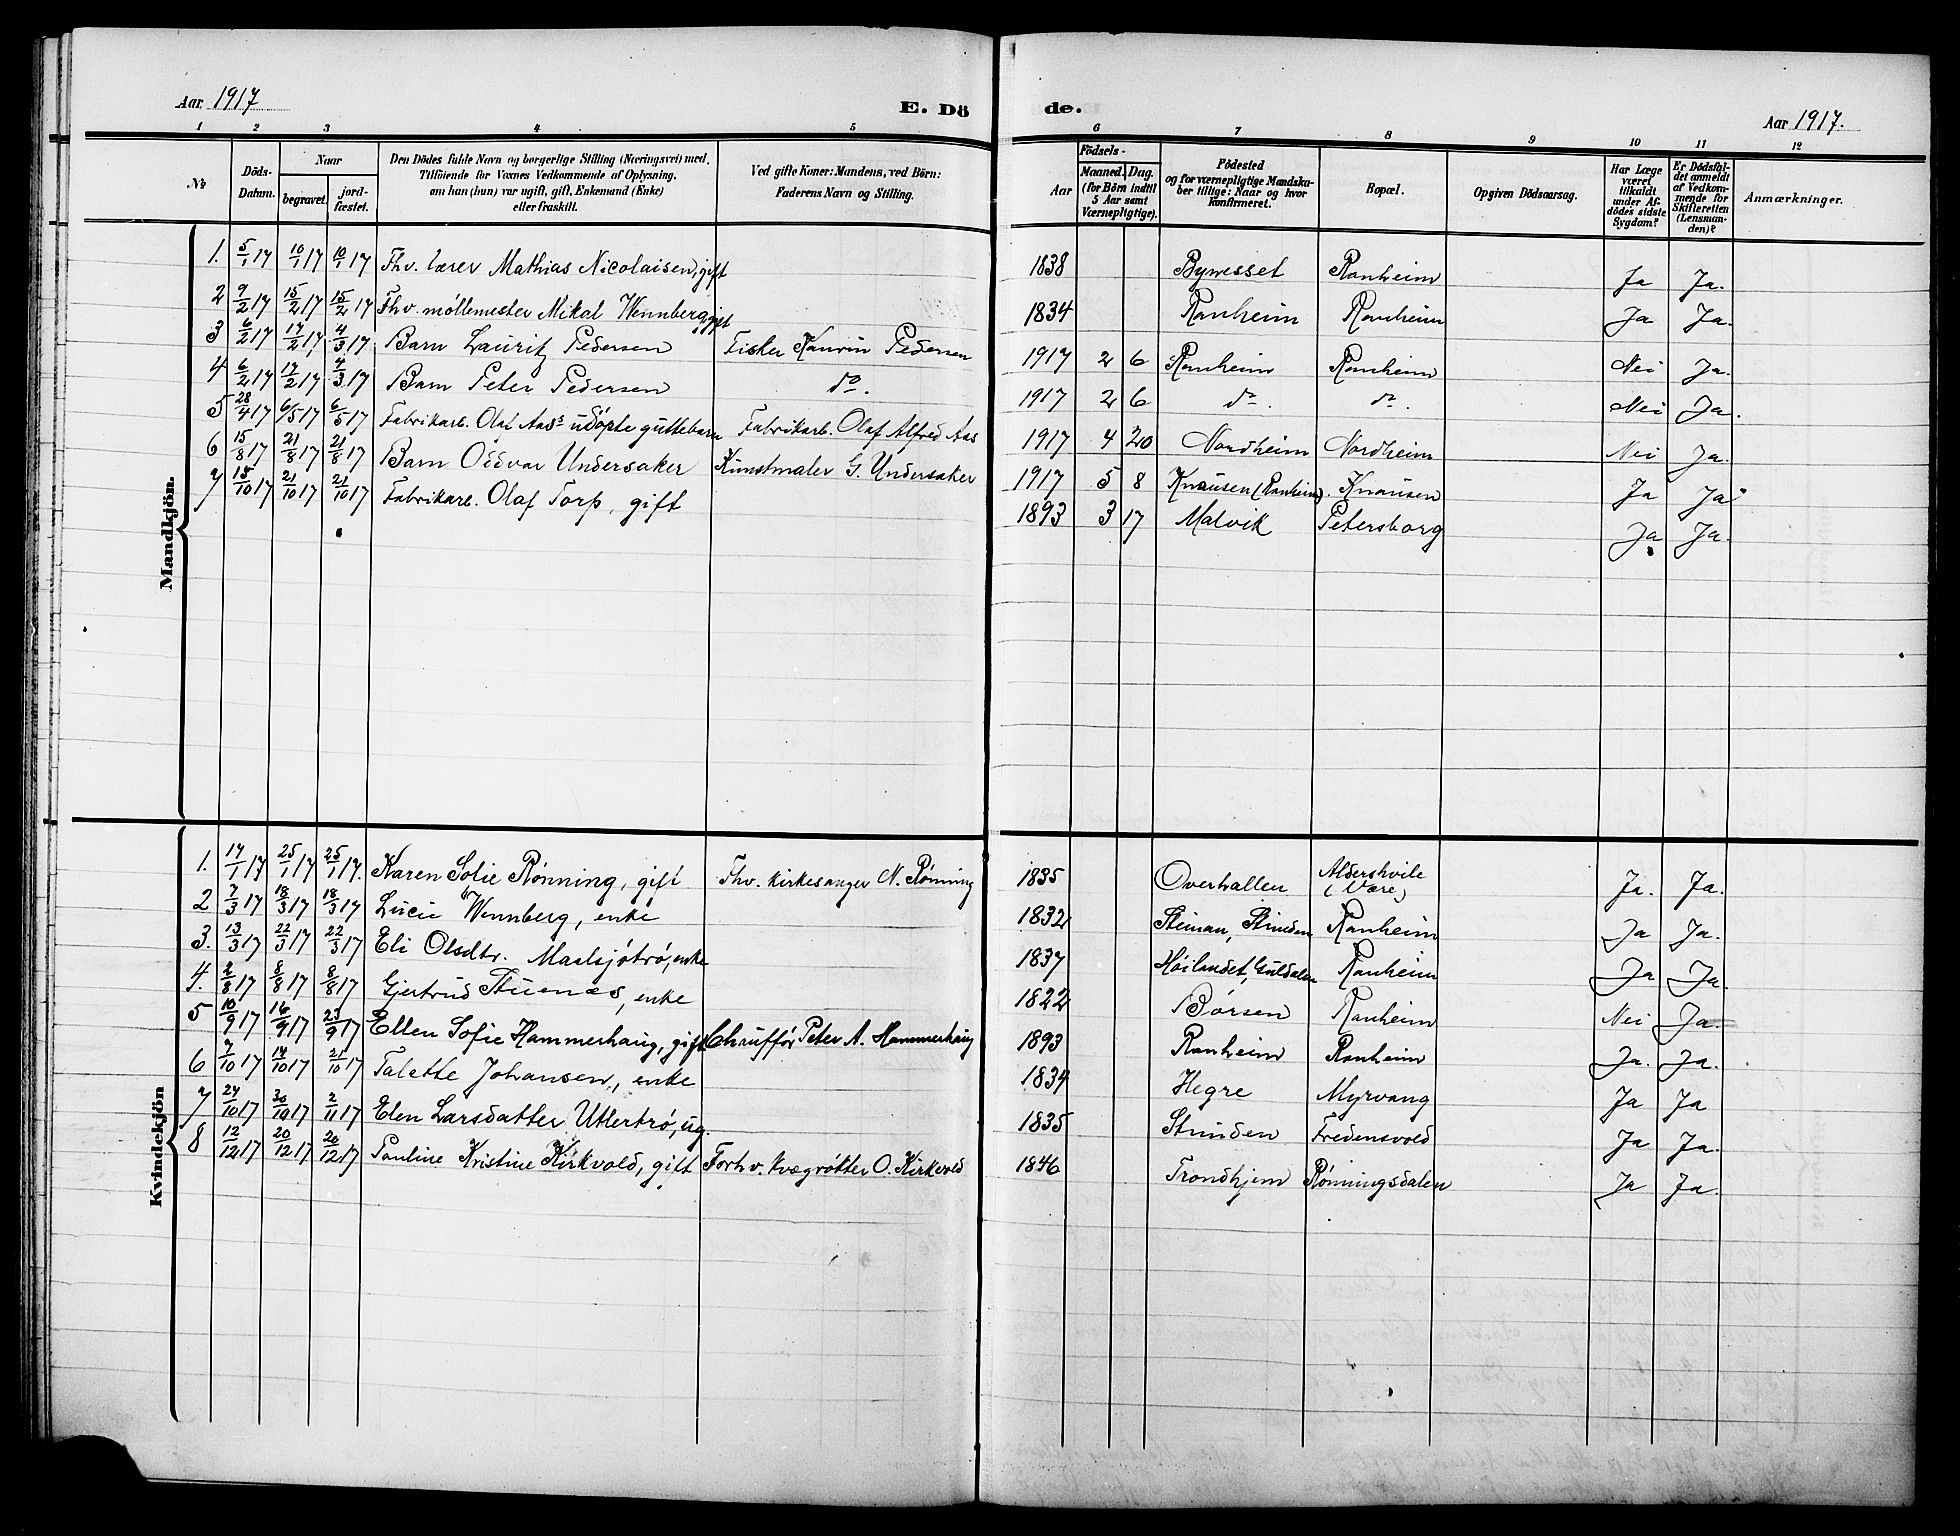 Aar 1917
E. Dö
de.
Aar 1917.
1 2 3 4 5
6 7 8 9 10 11 12
№
Döds-Datum.
Naar
begravet.
jord-fæstet.
Den Dödes fulde Navn og borgerlige Stilling (Næringsvei) med
Tilföiende for Voxnes Vedkommende af Oplysning,
om han (hun) var ugift, gift, Enkemand (Enke)
eller fraskilt.
Ved gifte Koner: Mandens, ved Börn:
Faderens Navn og Stilling.
Födsels-
Aar
Maaned. Dag.
(for Börn indtil
5 Aar samt
Værnepligtige).
Födested
og for værnepligtige Mandska-
ber tillige: Naar og hvor
Konfirmeret.
Bopæl.
Opgiven Dödsaarsag.
Har Læge
været
tilkaldt
under Af-
dödes sidste
Sygdom?
Er Dödsfal-
det anmeldt
af Vedkom-
mende for
Skifteretten
(Lensman-
den)?
Anmærkninger.
Mandkjön.
1. 5/1 17 10/1 17 10/1 17 Fhv. lærer Mathias Nicolaisen, gift 1838 Bynesset Ranheim Ja Ja.
2 9/2 17 15/2 17 15/2 17 Fhv. møllemester Mikal Wennberg, gift 1834 Ranheim Ranheim Ja Ja.
3 6/2 17 17/2 17 4/3 17 Barn Lauritz Pedersen Fisker Pedersen 1917 2 6 Ranheim Ranheim Nei Ja.
4 6/2 17 17/2 17 4/3 17 Barn Peter Pedersen do. 1917 2 6 do. do. Nei Ja.
5 28/4 17 6/5 17 6/5 17 Fabrikarb. Olaf Aas's udöpte guttebarn Fabrikarb. Olaf Alfred Aas 1917 4 20 Nordheim Nordheim Nei Ja.
6 15/8 17 21/8 17 21/8 17 Barn Oddvar Undersaker Kunstmaler G. Undersaker 1917 5 8 Knausen (Ranheim). Knausen Ja Ja
7 15/10 17 21/10 17 21/10 17 Fabrikarb. Olaf Torp, gift 1893 3 17 Malvik Petersborg Ja Ja.
Kvindekjön
1. 17/1 17 25/1 17 25/1 17. Karen Sofie Rønning, gift Fhv. kirkesanger N. Rønning 1835 Overhallen Aldershvile (Være) Ja. Ja.
2 7/3 17 18/3 17 18/3 17 Lucie Wennberg, enke 1832 Steinan, Strinden Ranheim Ja Ja.
3. 13/3 17 22/3 17 22/3 17 Eli Olsdtr. Maalsjötrö, enke 1837 Høilandet, Guldalen Ranheim Ja Ja.
4. 2/8 17 8/8 17 8/8 17 Gjertrud Stuenæs, enke 1822 Börsen Ranheim Nei Ja.
5 10/9 17 16/9 17 23/9 17 Ellen Sofie Hammerhaug, gift Chauffør Peter A. Hammerhaug 1893 Ranheim Ranheim Ja. Ja.
6 7/10 17 14/10 17 21/10 17 Talette Johansen, enke 1834 Hegre Myrvang Ja Ja
7 24/10 17 30/10 17 2/11 17 Elen Larsdatter Utlertrö, ug. 1835 Strinden Fredensvold Ja Ja.
8 12/12 17 20/12 17 20/12 17 Pauline Kristine Kirkvold, gift Forhv. kvægrøkter O. Kirkvold 1846 Trondhjem Rønningsdalen Ja Ja.